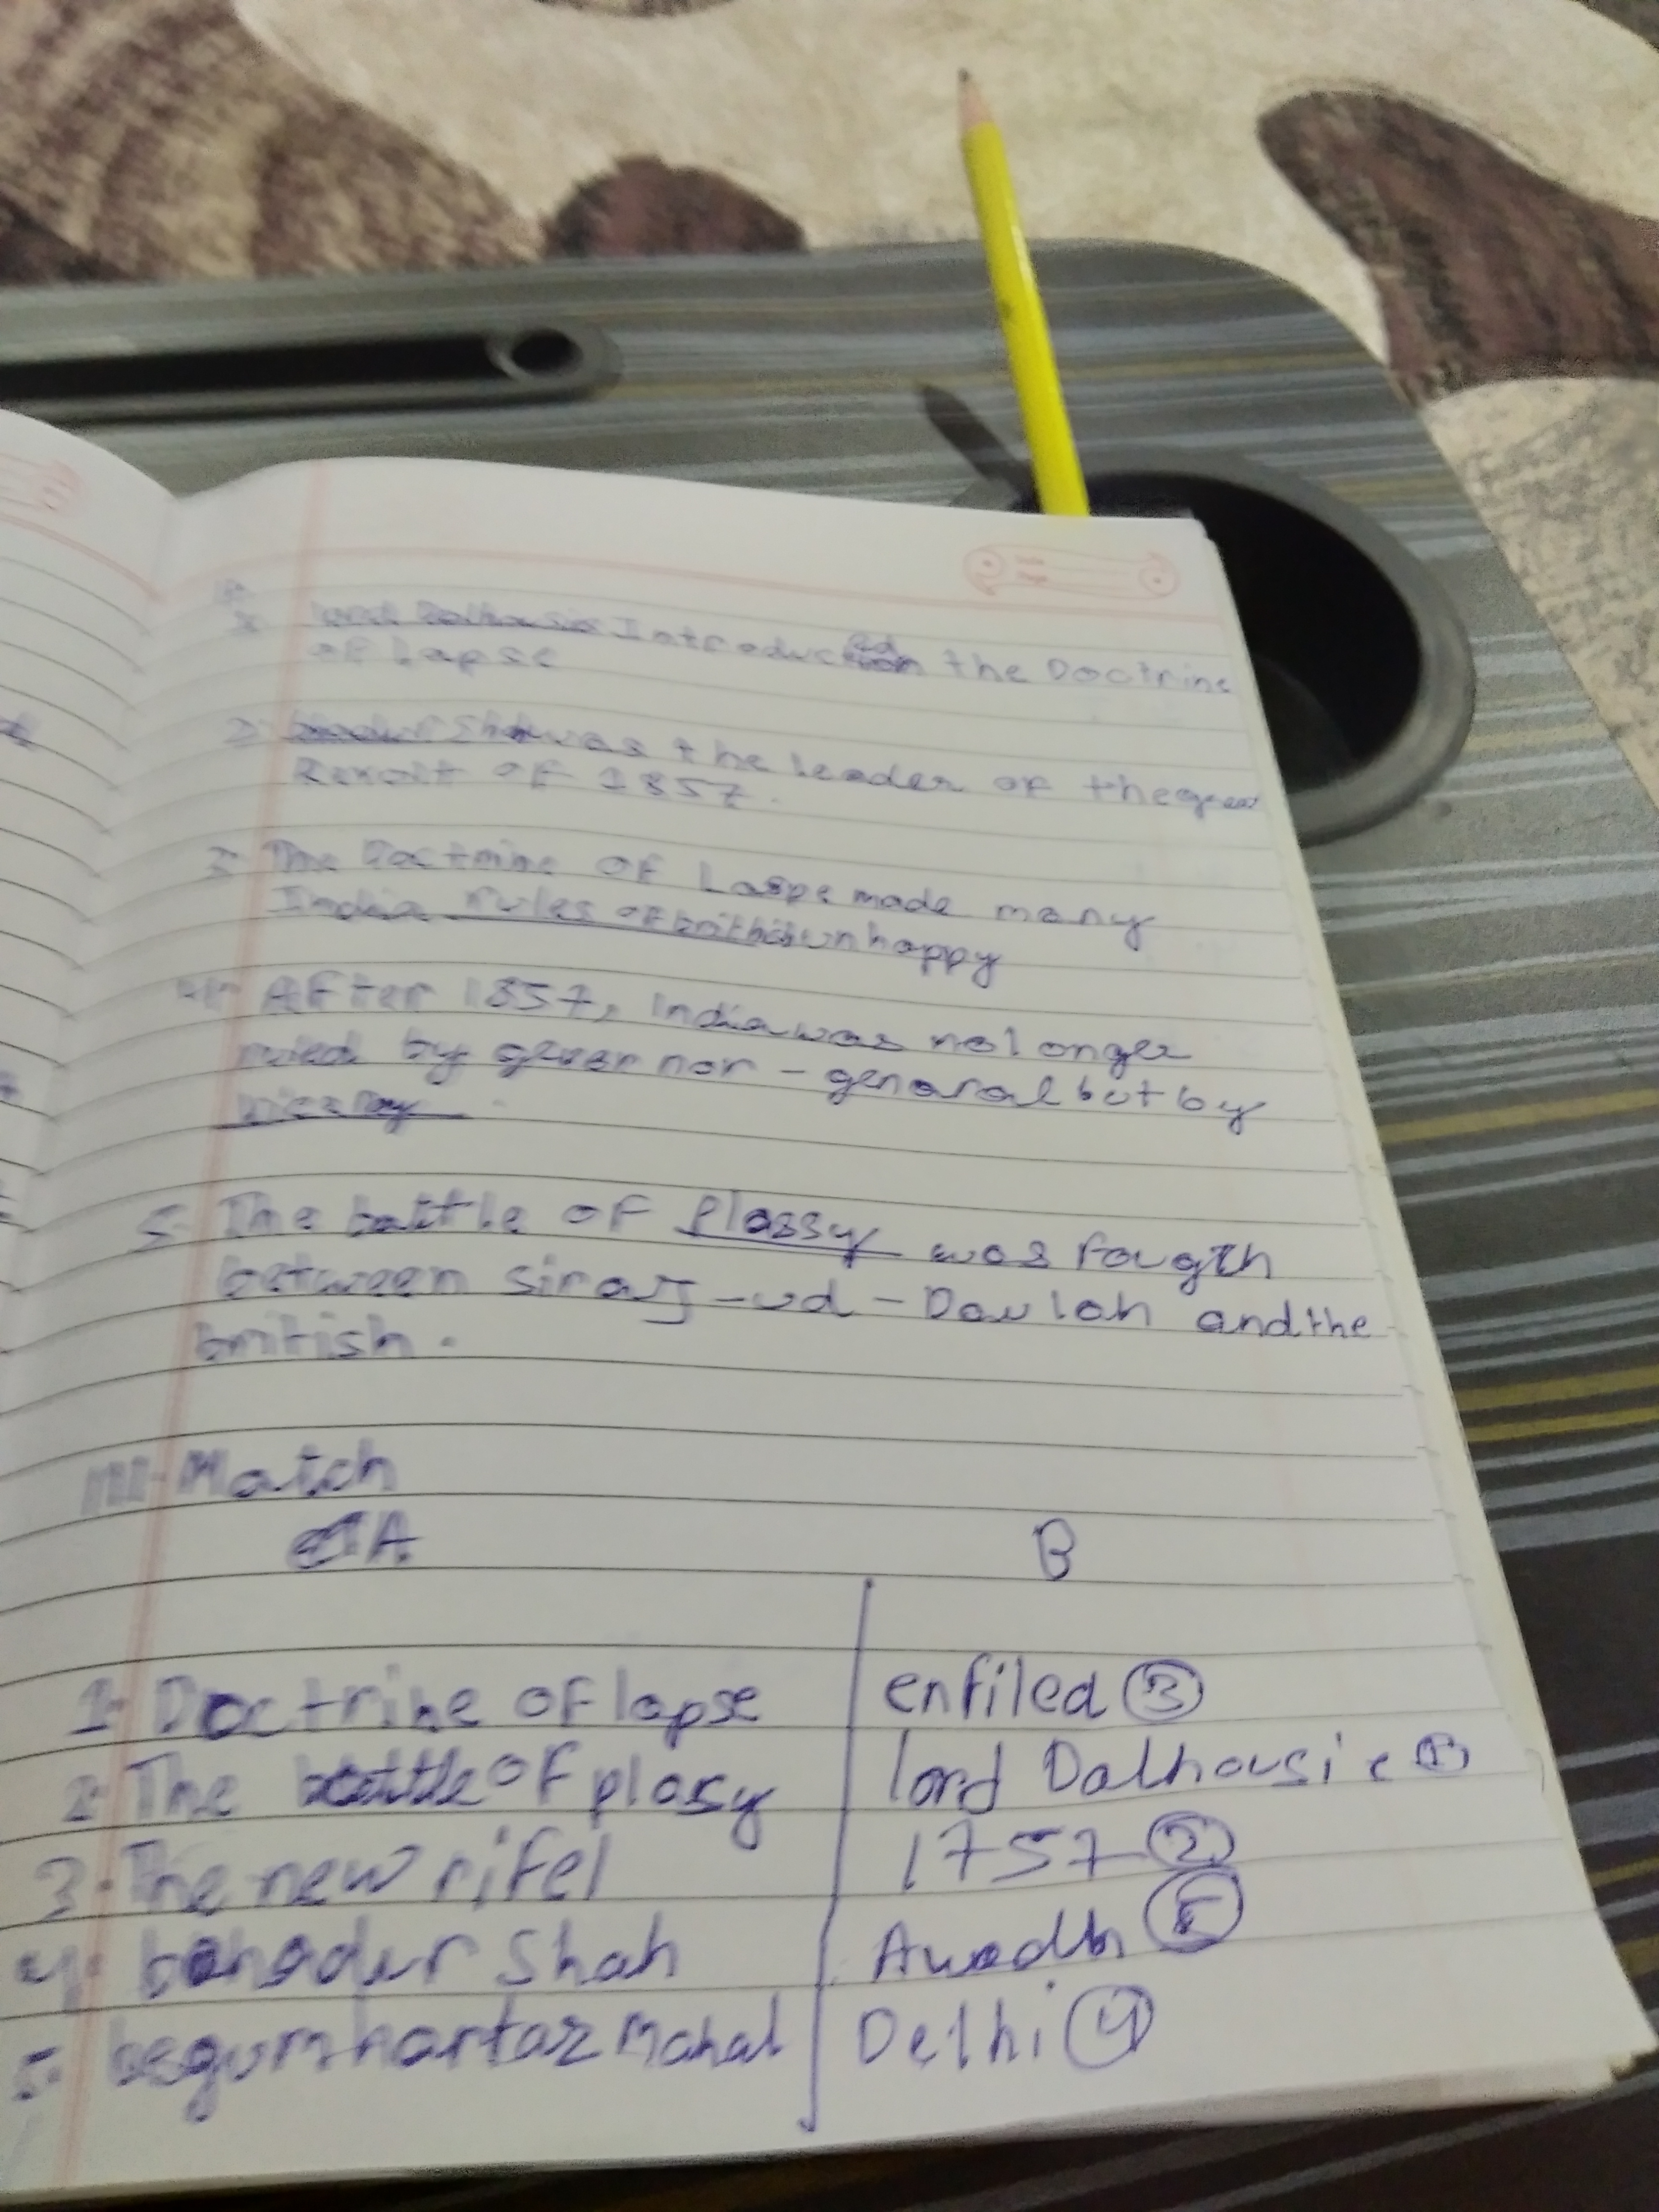 lord Dalhousie Introduced the Doctrine
of lapse
2. Shah was the leader of the great
Revolt of 1857.
3. The Doctrine of Laspe made many
India rules of british unhappy
4. After 1857, India was no longer
ruled by general but by
5. The battle of Plassy was fougth
between siraj-ud-Daulah and the
british.
III. Match
A. B
1. Doctrine of lapse enfiled 3
2. The battle of plassy lord Dalhousie 1
3. The new rifel 1757 2
4. bahadur Shah Awadh 5
5. Mahal Delhi 4